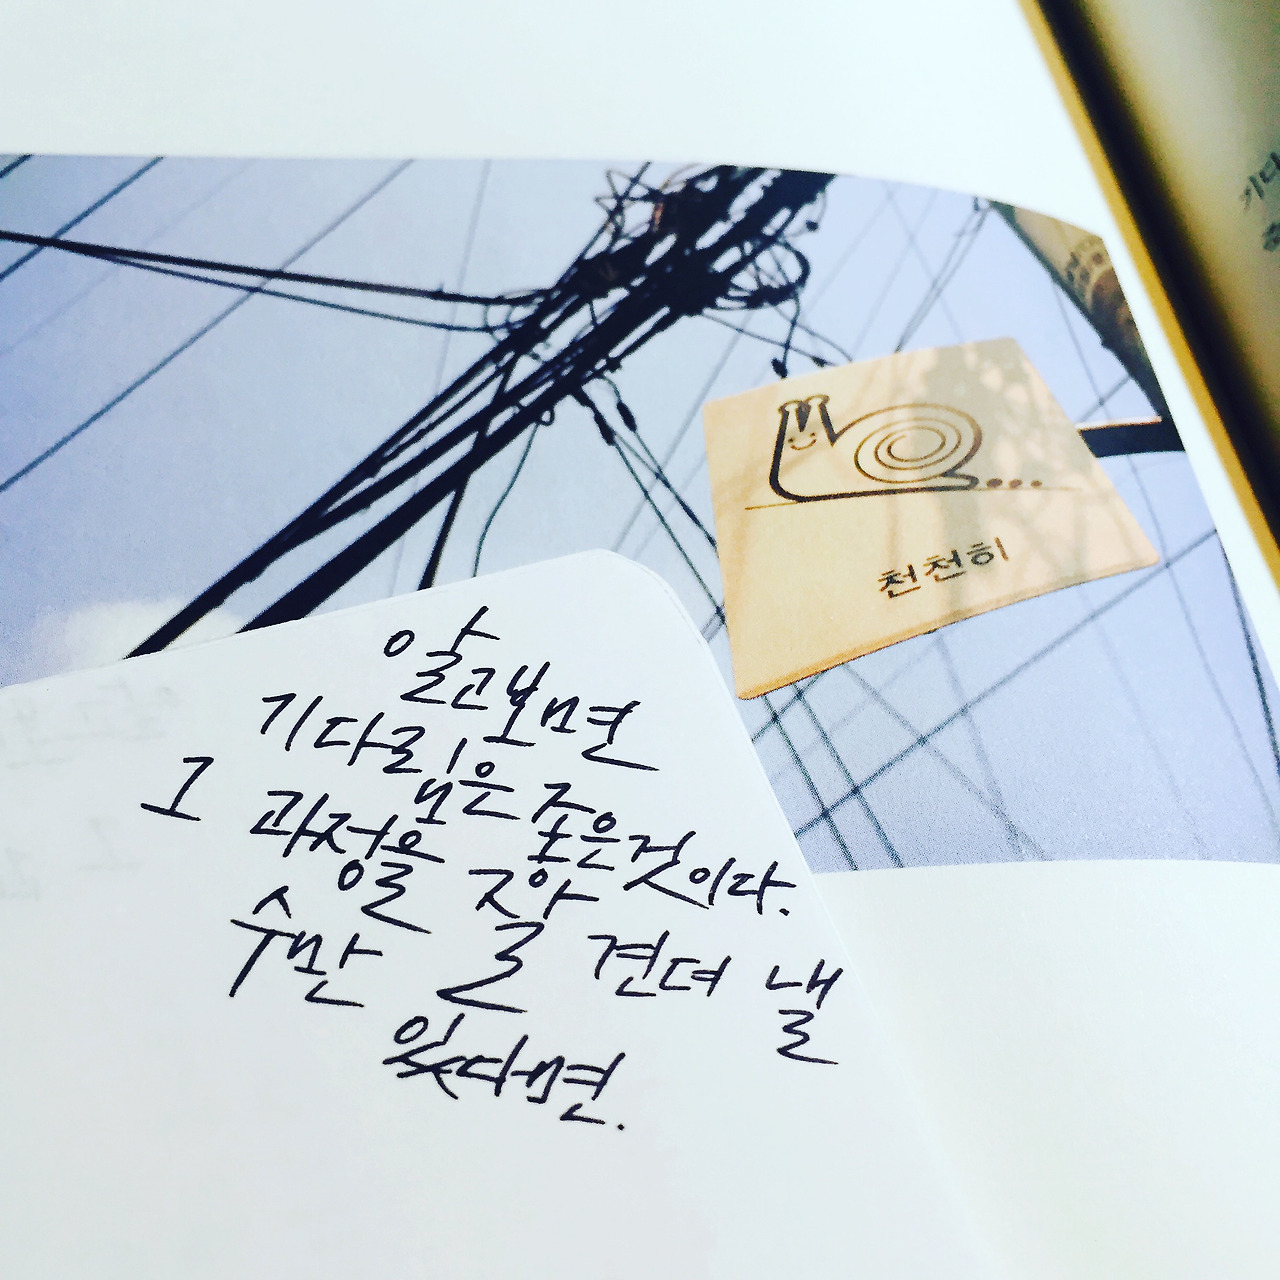 천천히
알고보면
기다림은 좋은것이다.
그 과정을 잘 견뎌 낼
수만 있다면.
기다